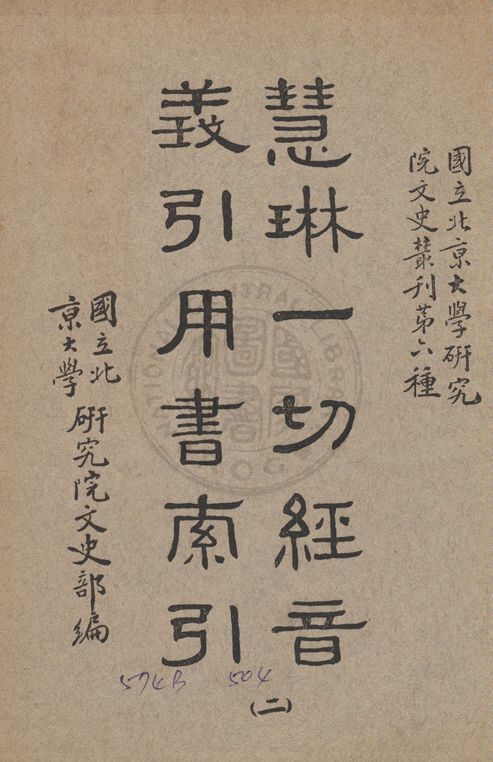 國立北京大學研究
院文史叢刊第六種
慧琳一切經音
義引用書索引
(二)
國立北
京大學
研究院文史部編
574B 504